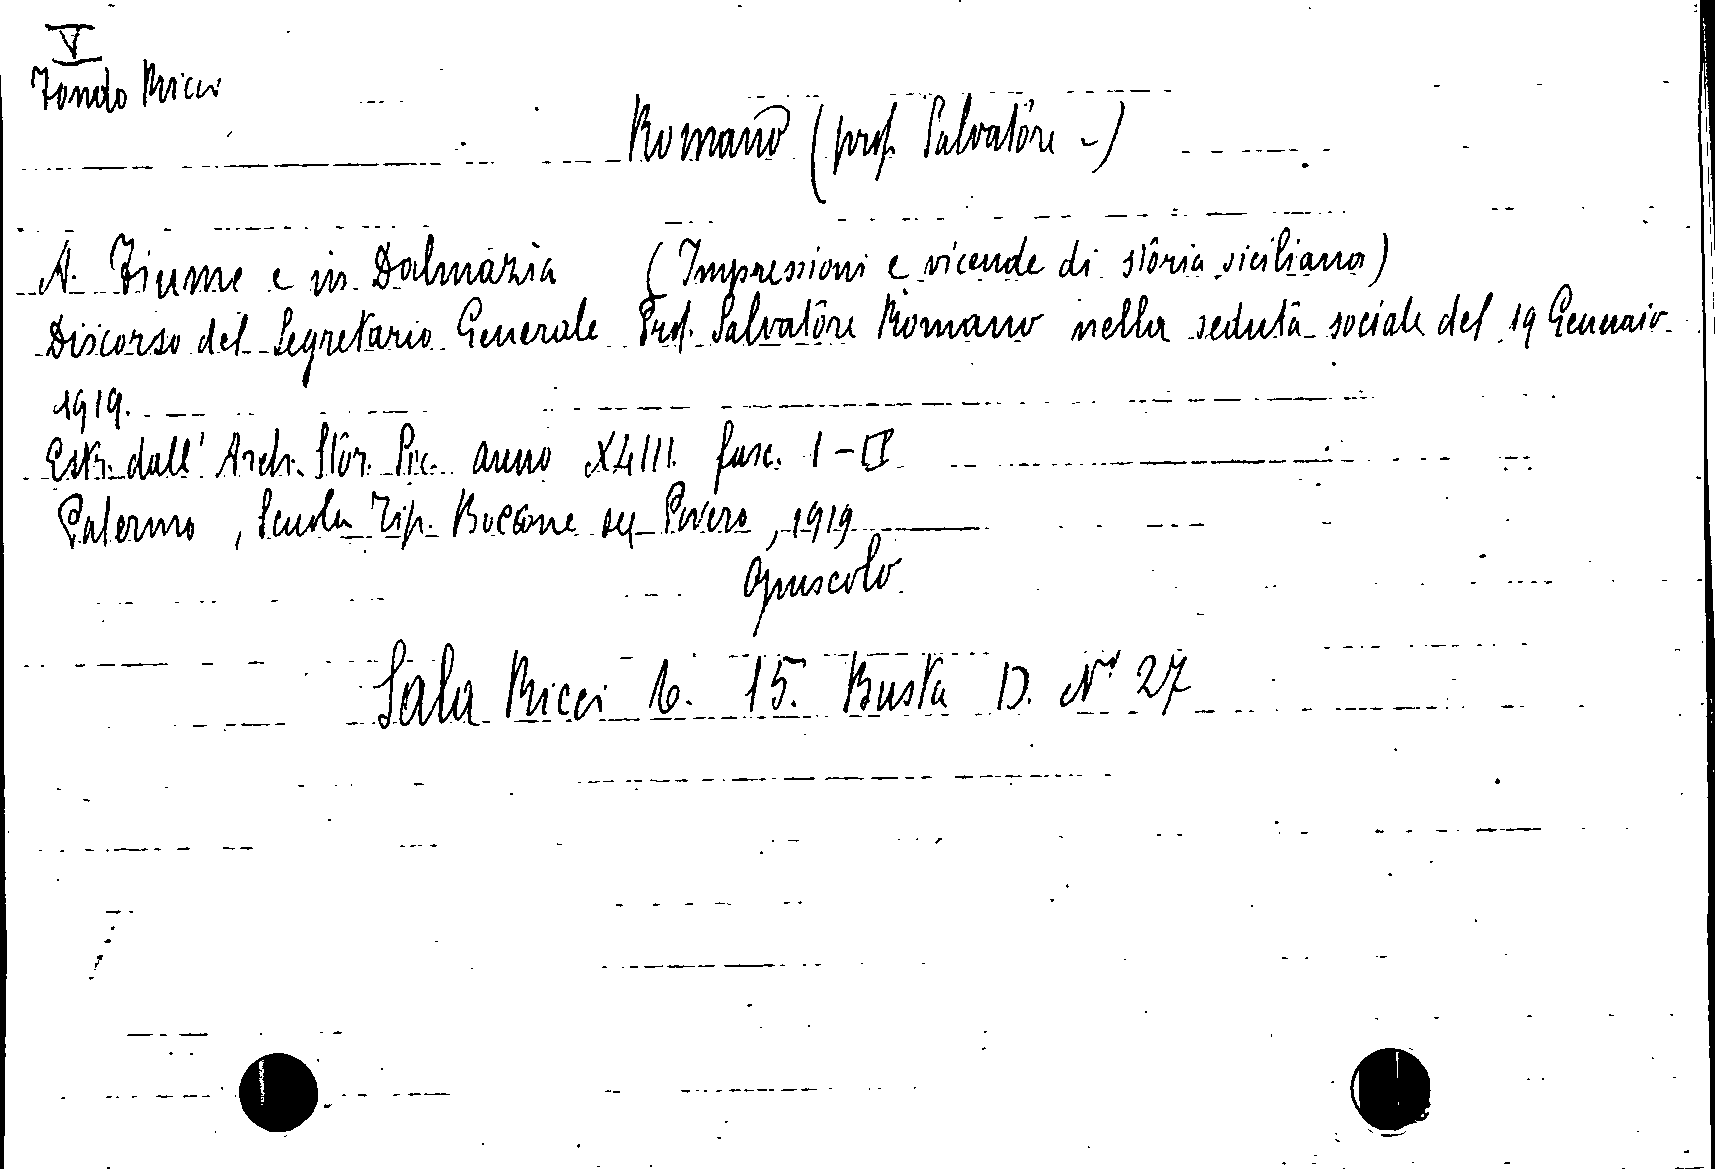 V
Fondo Ricci
Romano (prof. Salvatore -)
A. Fiume e in Dalmazia (Impressioni e vicende di storia siciliana)
Discorso del Segretario Generale Prof. Salvatore Romano nella seduta sociale del 19 Gennaio
1919.
Estr. dall' Arch. Stor. Sic. anno XLIII. fasc. I-II
Palermo, Scuola Tip. Boccone del Povero, 1919
Opuscolo.
Sala Ricci 6. 15. Busta D. N° 27